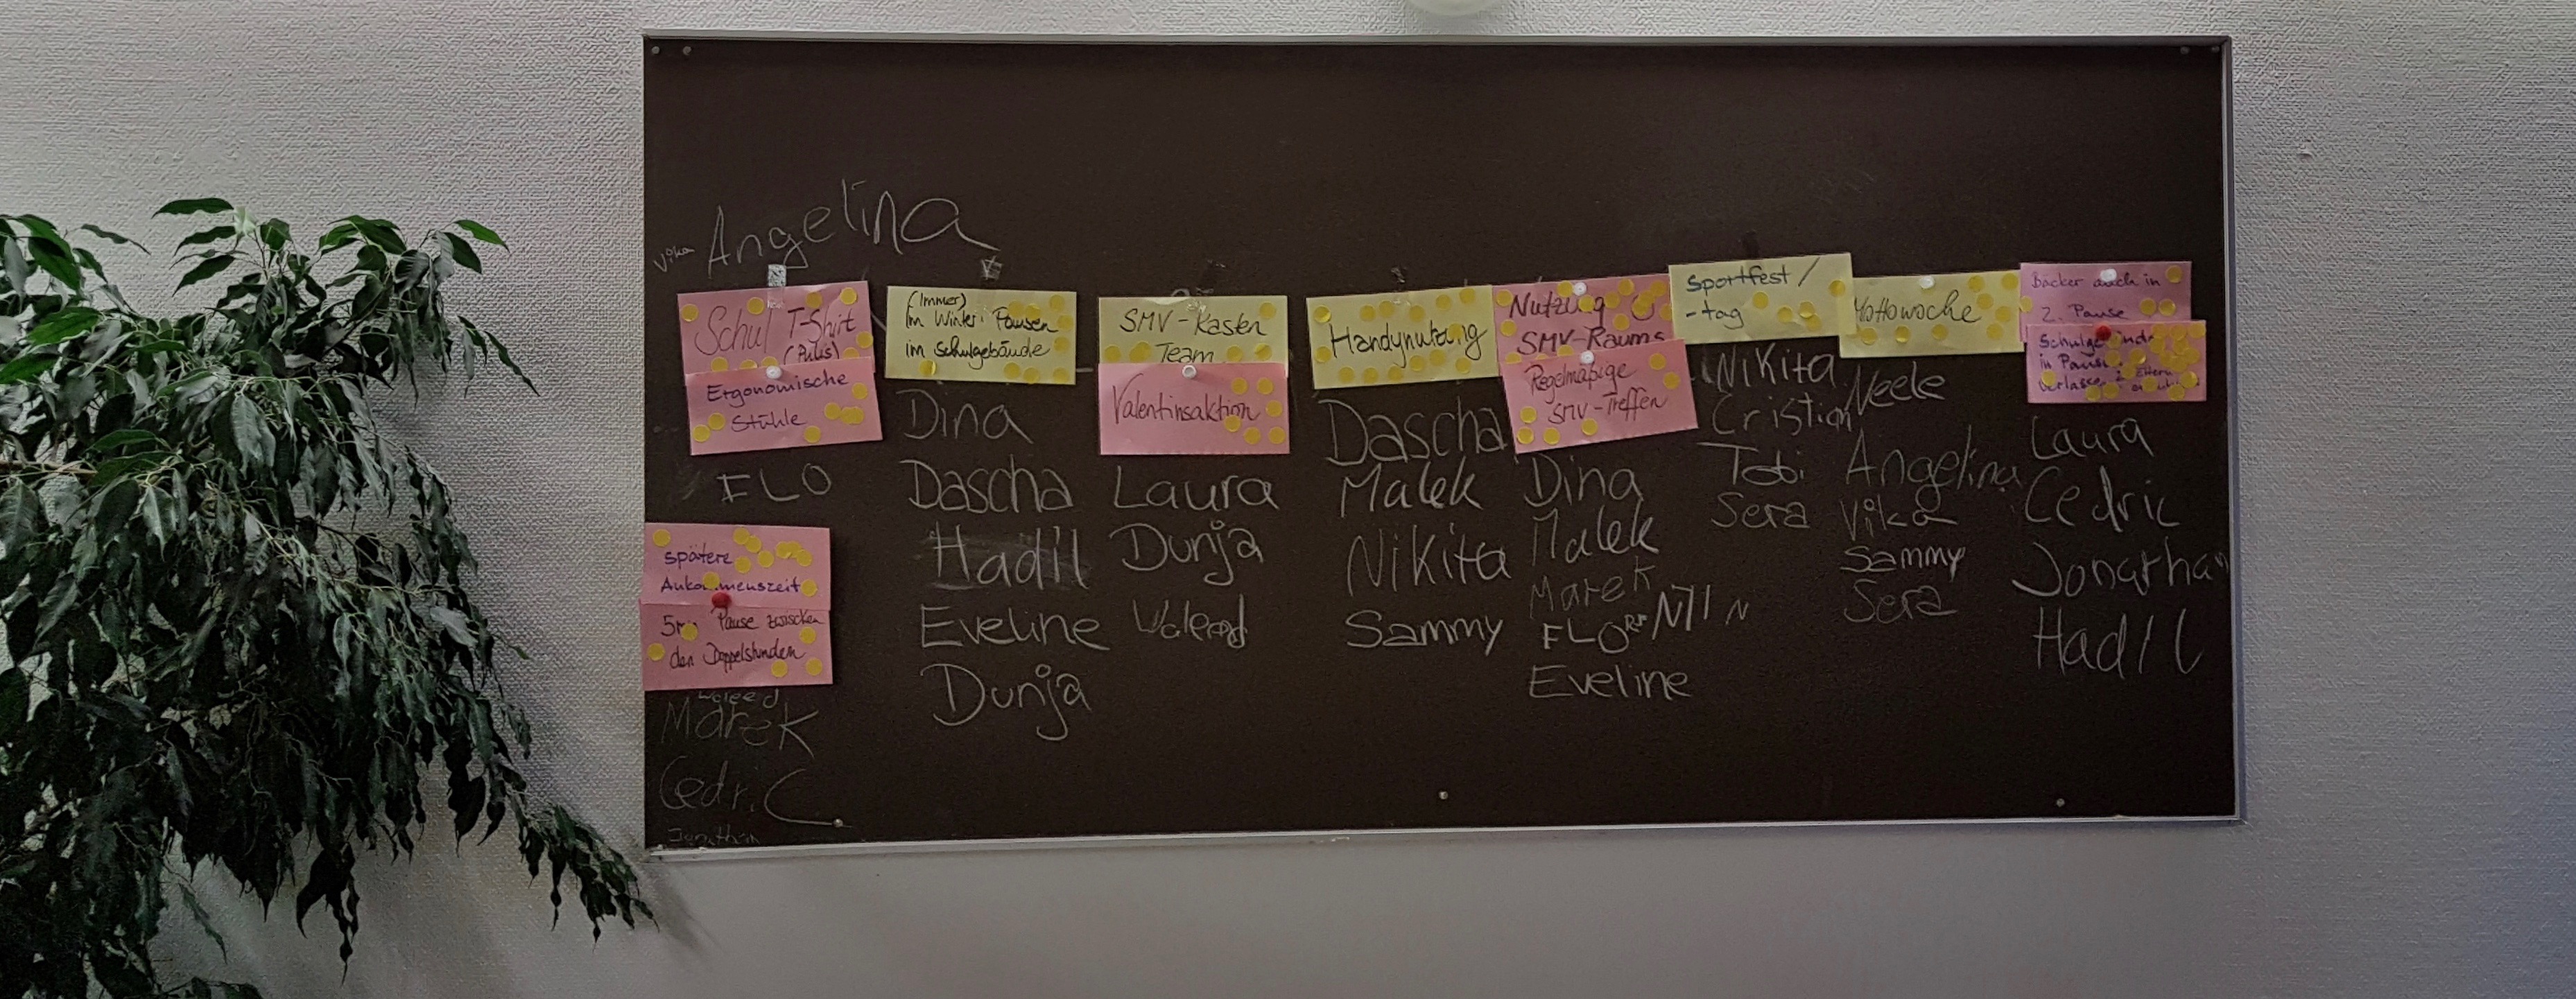 Angelina
Vika
Schul T-Shirt
(Pulis)
Ergonomische
Stühle
FLO
spätere
Ankommenszeit
Pause zwischen
den Doppelstunden
Waleed
Marek
Cedric
Jonathan
(Immer)
Im Winter Pausen
im Schulgebäude
Dina
Dascha
Hadil
Eveline
Dunja
SMV-Kasten
Team
Valentinsaktion
Laura
Dunja
Waleed
Handynutzung
Dascha
Malek
Nikita
Sammy
Nutzung
SMV-Raums
Regelmäßige
SMV-Treffen
Dina
Malek
Marek
FLO
Eveline
Sportfest/
-tag
Nikita
Cristian
Tobi
Sera
Mottowoche
Neele
Angelina
Vika
Sammy
Sera
Bäcker auch in
2. Pause
in Pause
Laura
Cedric
Jonathan
Hadil